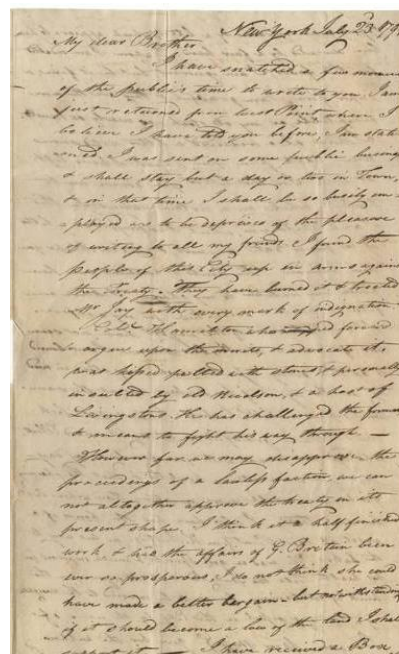 New York July 23 179
My dear Brother
I have snatched a few momen
of the public's time to write to you. I am
just returned from West Point where I
believe I have told you before, I am stati
oned. I was sent on some public busine
& shall stay but a day or two in Town,
& in that time I shall be so busily em
ployed as to be deprived of the pleasure
of writing to all my friends. I found the
people of this City up in arms against
the Treaty. They have burned it & treated
Mr Jay with every mark of indignation.
Colo. Hamilton who forward
argue upon the merits, & advocate it,
was hissed pelted with stones & personally
insulted by old & a host of
Livingstons. He has challenged the former
& means to fight his way through —
However far we may disapprove the
proceedings of a lawless faction, we can
not altogether approve the treaty in its
present shape. I think it a half finished
work & had the affairs of G. Britain been
ever so prosperous, I do not think she could
have made a better bargain - but notwithstanding
if it should become a law of the land I shall
support it — I have received a Box